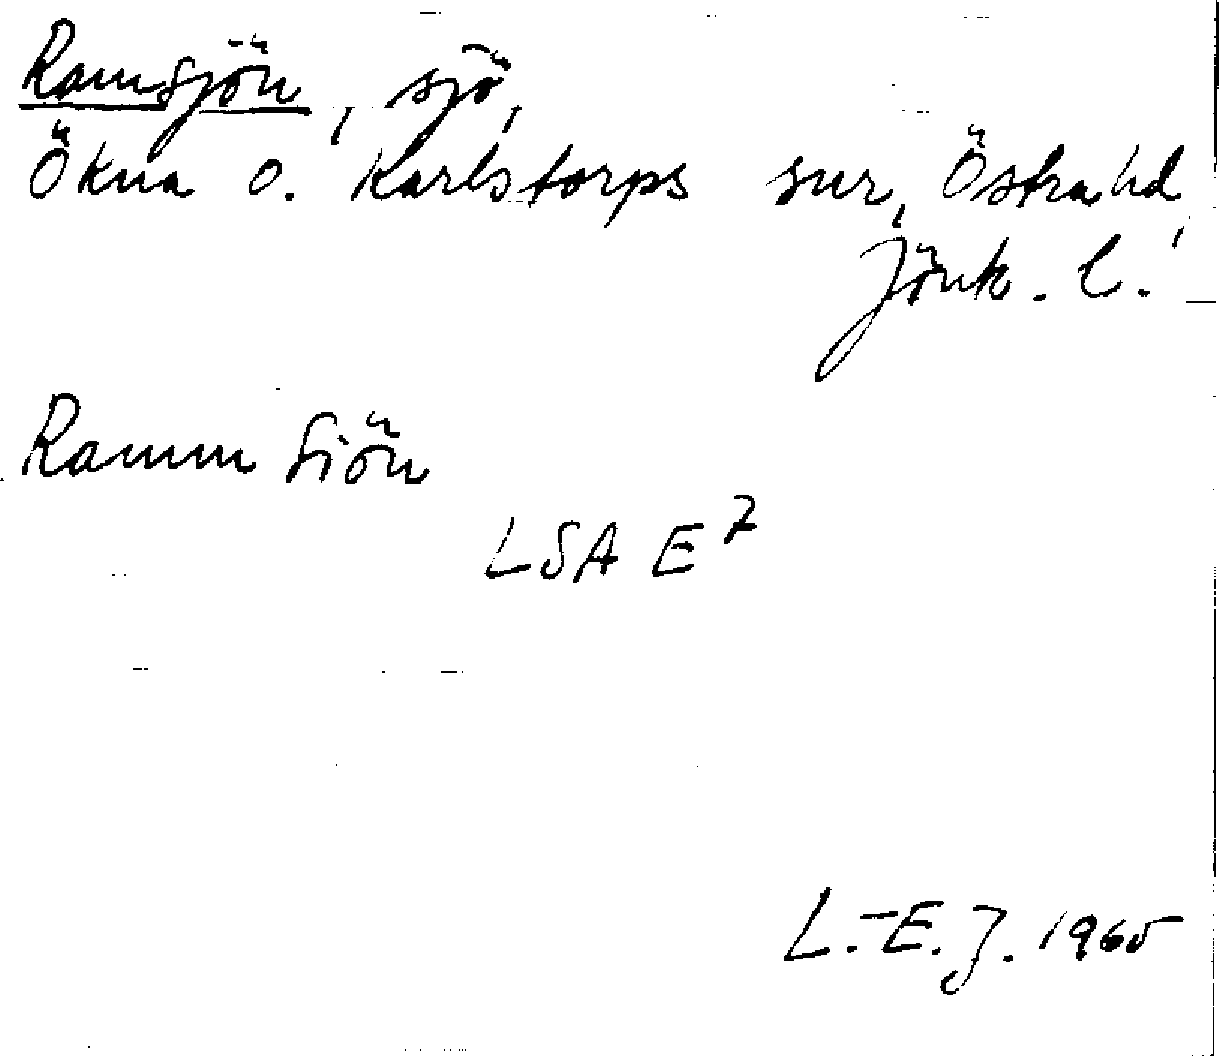 Ramsjön, sjö,
Ökna o. Karlstorps snr, Östra hd,
Jönk. l.
Ramm Siön
LSA E7
L.-E. J. 1965